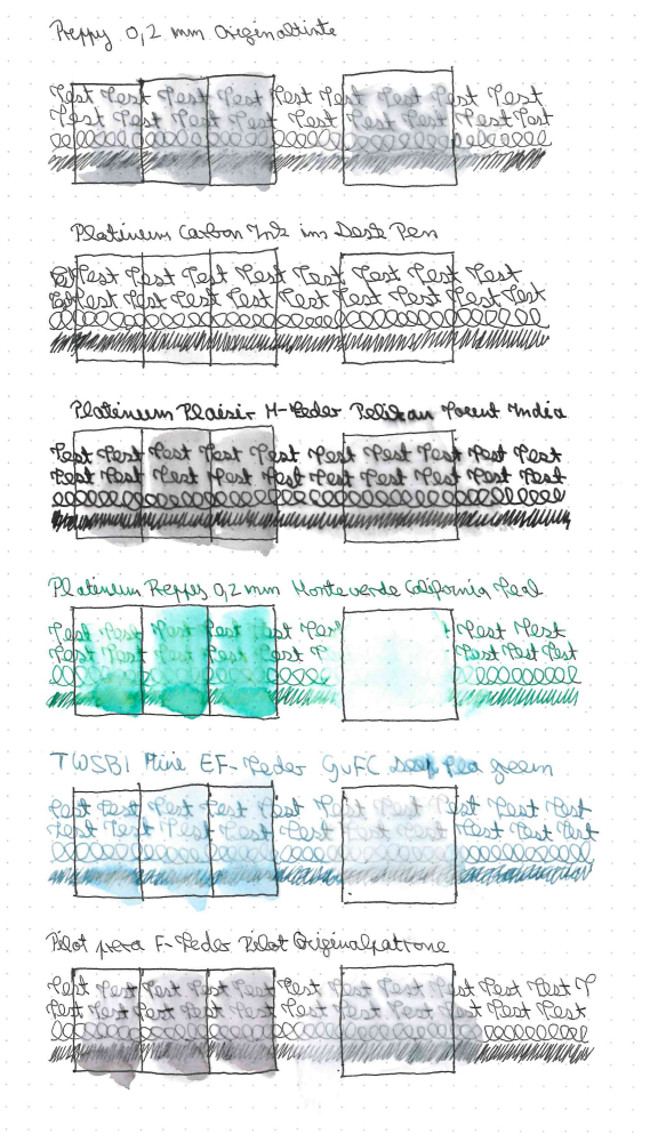 Preppy 0,2 mm Originaltinte
Test Test Test Test Test Test Test Test Test
Test Test Test Test Test Test Test Test Test
Platinum Carbon Ink im Deste Pen
Test Test Test Test Test Test Test Test
Test Test Test Test Test Test Test Test Test
Platinum Plaisir M-Feder Pelikan Fount India
Test Test Test Test Test Test Test Test Test Test
Test Test Test Test Test Test Test Test Test Test
Platinum Preppy 0,2 mm Monteverde California Teal
Test Test Test Test Test Tes Test Test
Test Test Test Test Test T Test Test Test
TWSBI Mini EF-Feder GvFC Deep Sea green
Test Test Test Test Test Test Test Test Test Test
Test Test Test Test Test Test Test Test Test Test
Pilot prera F-Feder Pilot Originalpatrone
Test Test Test Test Test Test Test Test Test Test Test T
Test Test Test Test Test Test Test Test Test Test Test